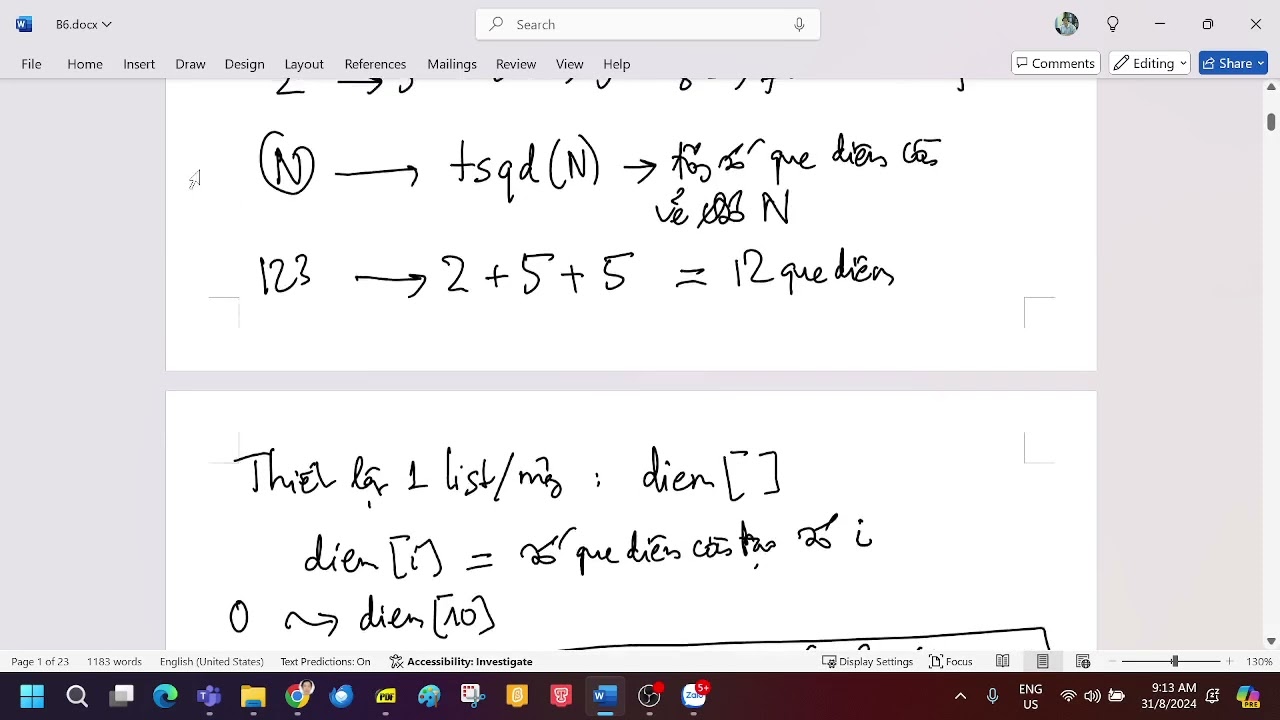 B6.docx
Search
File Home Insert Draw Design Layout References Mailings Review View Help
Comments Editing Share
N → tsqd(N) → tổng số que diêm cần
vẽ số N
123 → 2 + 5 + 5 = 12 que diêm
Thiết lập 1 list/mảng : diem[ ]
diem[i] = số que diêm cần tạo số i
0 ⇝ diem[10]
Page 1 of 23 1183 words English (United States) Text Predictions: On Accessibility: Investigate Display Settings Focus 130%
PDF
5+
ENG
US
9:13 AM
31/8/2024
PRE